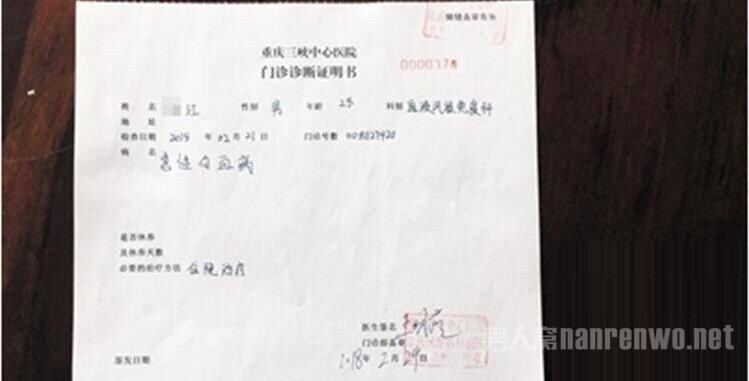 骑缝盖章有效
重庆三峡中心医院
门诊诊断证明书
0000378
姓 名 江 性别 男 年龄 25 科别 血液风湿免疫科
地 址
检查日期 2018 年 02 月 25 日 门诊号数
病 名 急性白血病
是否休养
及休养天数
必要的治疗方法 住院治疗
医生签名
门诊部盖章
签发日期 2018 年 2 月 29 日
男人窝nanrenwo.net